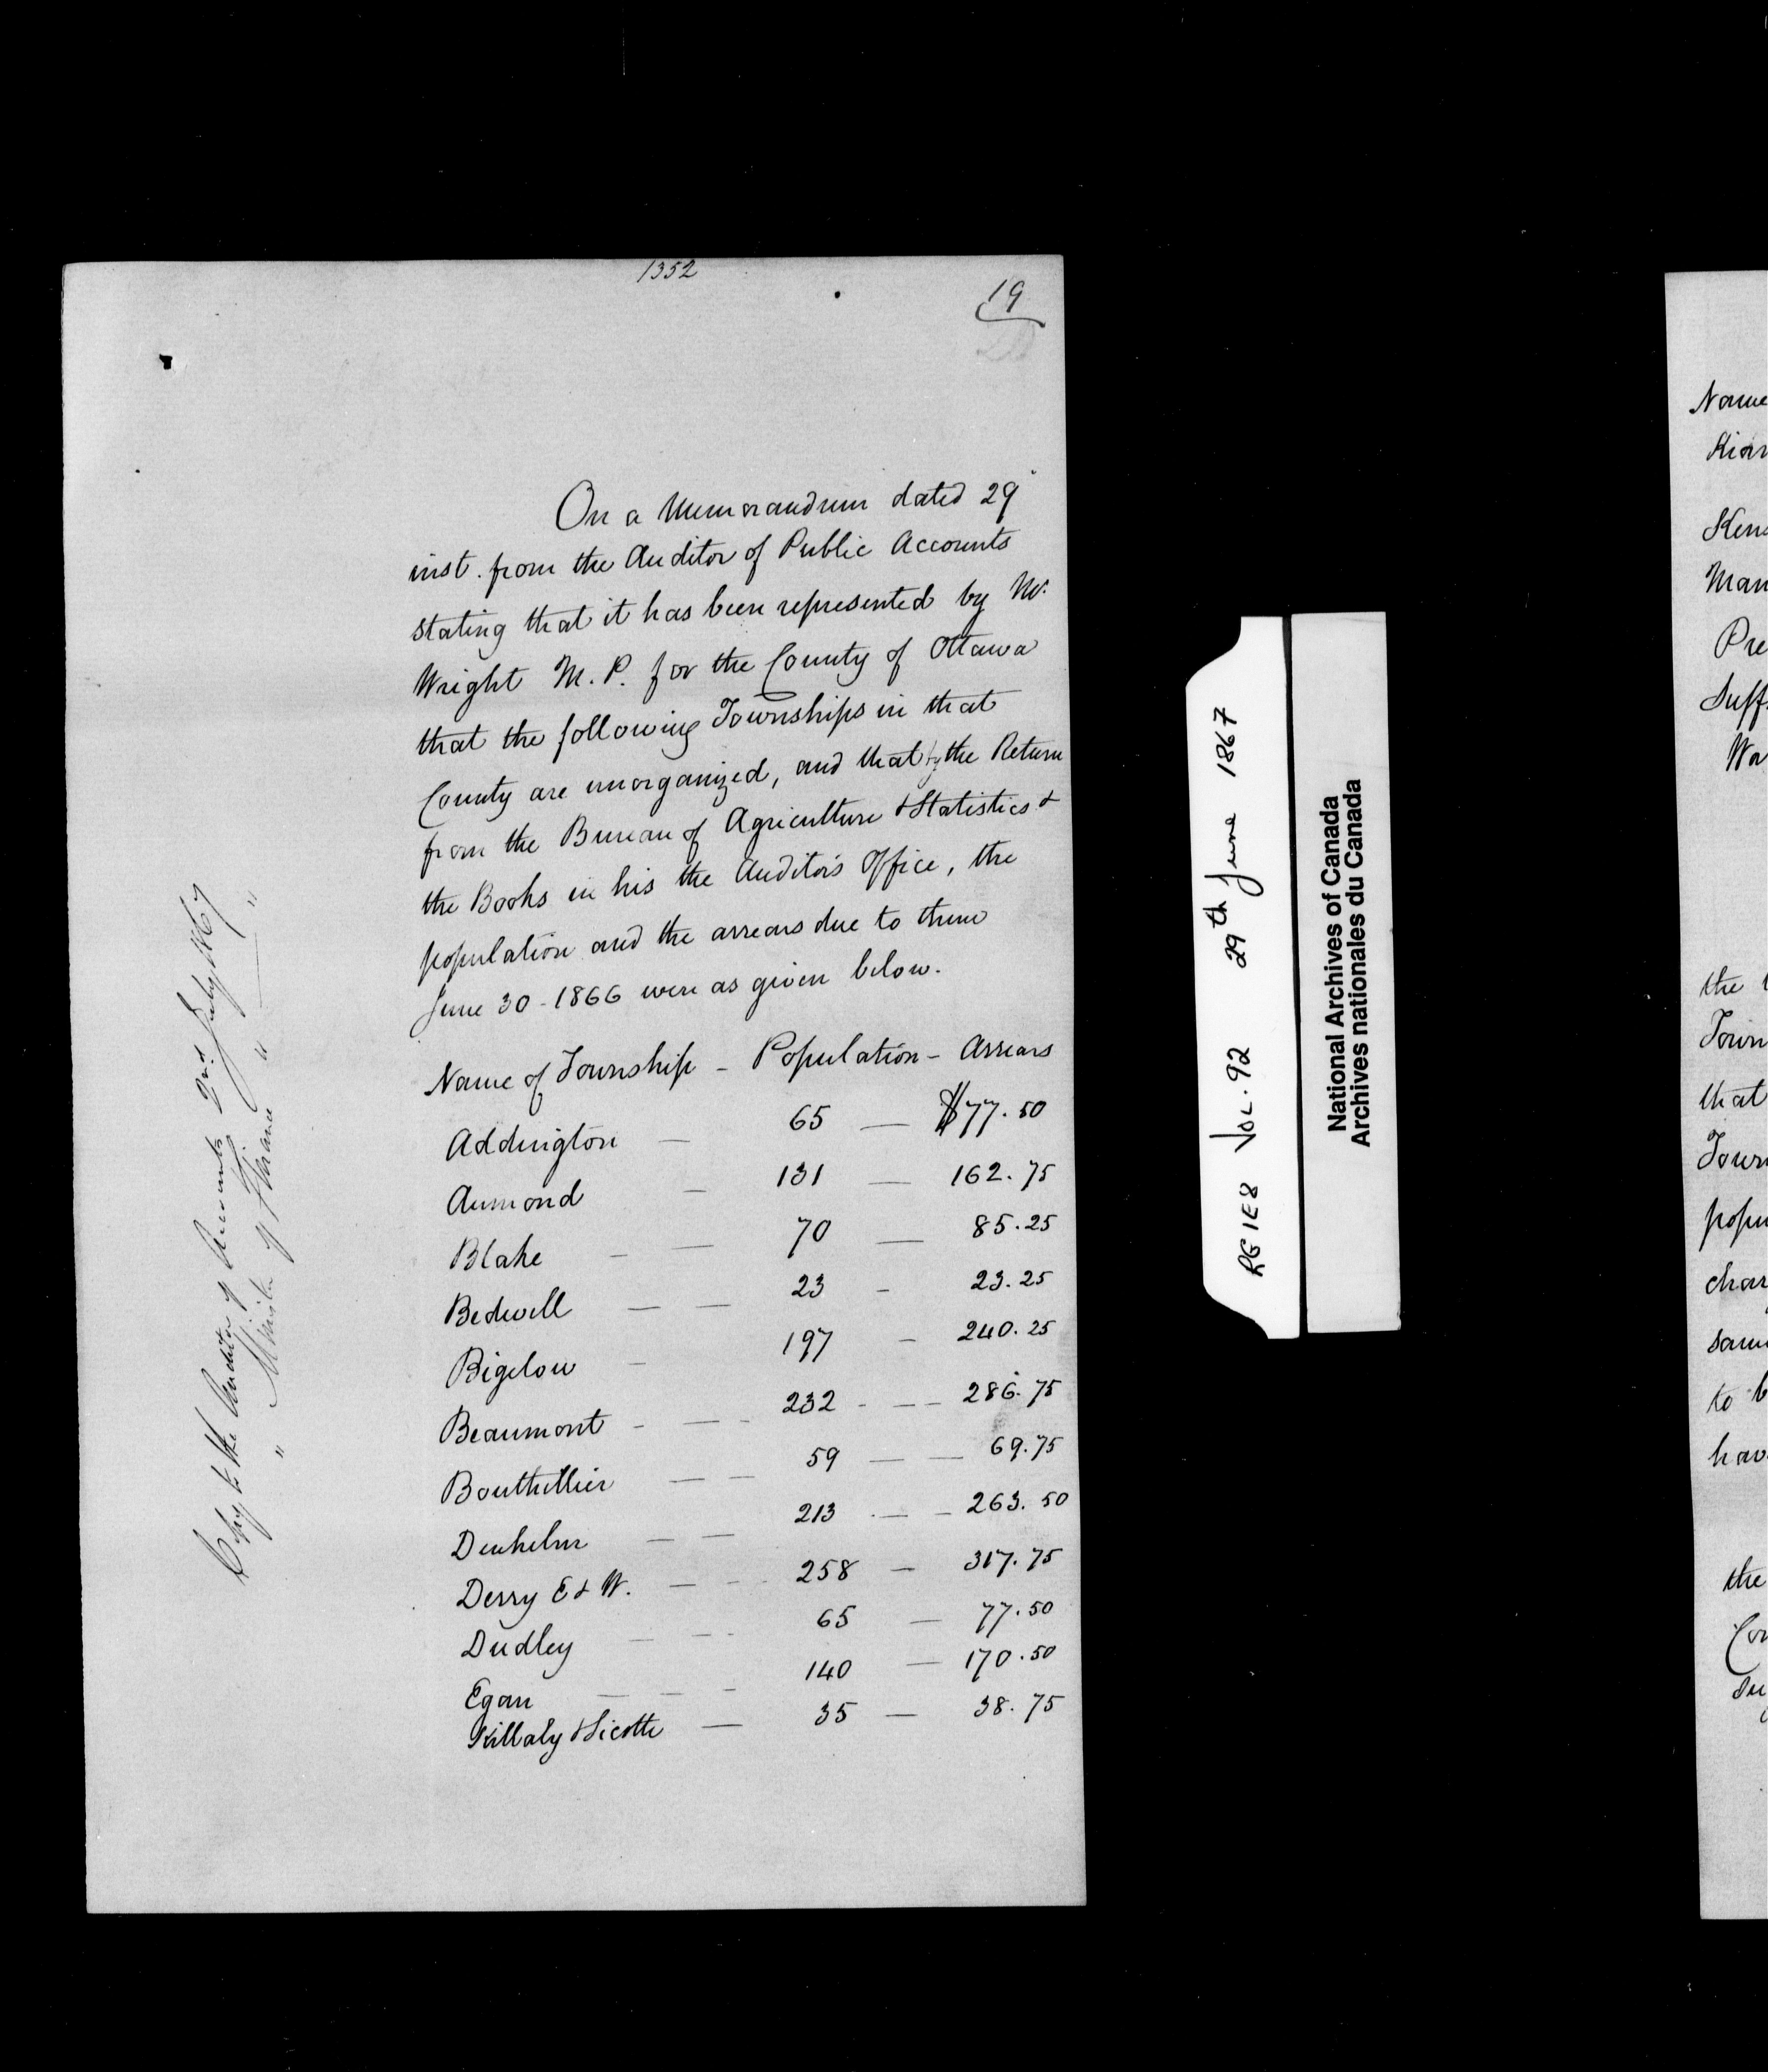 1352
19
On a Memorandum dated 29"
inst. from the Auditor of Public Accounts
stating that it has been represented by Mr.
Wright M. P. for the County of Ottawa
that the following Townships in that
County are unorganized, and that by the Return
from the Bureau of Agriculture & Statistics &
the Books in his the Auditor's Office, the
population and the arrears due to them
June 30 - 1866 were as given below.
Name of Township - Population - Arrears
Addington — 65 — $77.50
Aumond — 131 — 162.75
Blake — — 70 — 85.25
Bedwell — — 23 - 23.25
Bigelow — 197 - 240.25
Beaumont - — - 232 - — - 286.75
Bouthillier — — 59 — — 69.75
Denholm — — 213 - — - 263.50
Derry E & W. — - - 258 — 317.75
Dudley — - - 65 — 77.50
Egan — — - 140 — 170.50
Killaly & Sicotte — 35 — 38.75
Copy to the Auditor of Accounts 2nd July 1867
" Minister of Finance " "
RG 1E8 VOL. 92 29th June 1867
National Archives of Canada
Archives nationales du Canada
Name
Kens
Man
Pre
Suff
Wa
the
Town
that
Town
popu
char
same
to b
hav
the
Con